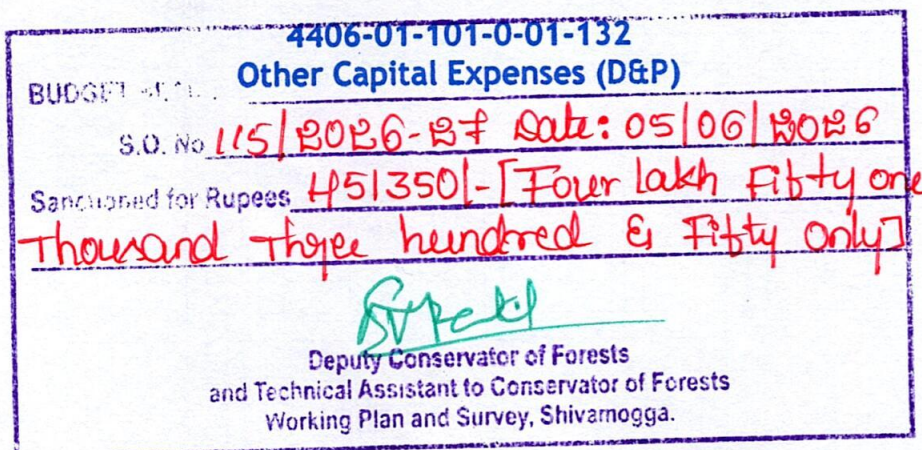 4406-01-101-0-01-132
BUDGET Other Capital Expenses (D&P)
S.O. No 115/2026-27 Date: 05/06/2026
Sanctioned for Rupees 451350/- [Four lakh Fifty one
Thousand Three hundred & Fifty only]
Deputy Conservator of Forests
and Technical Assistant to Conservator of Forests
Working Plan and Survey, Shivamogga.